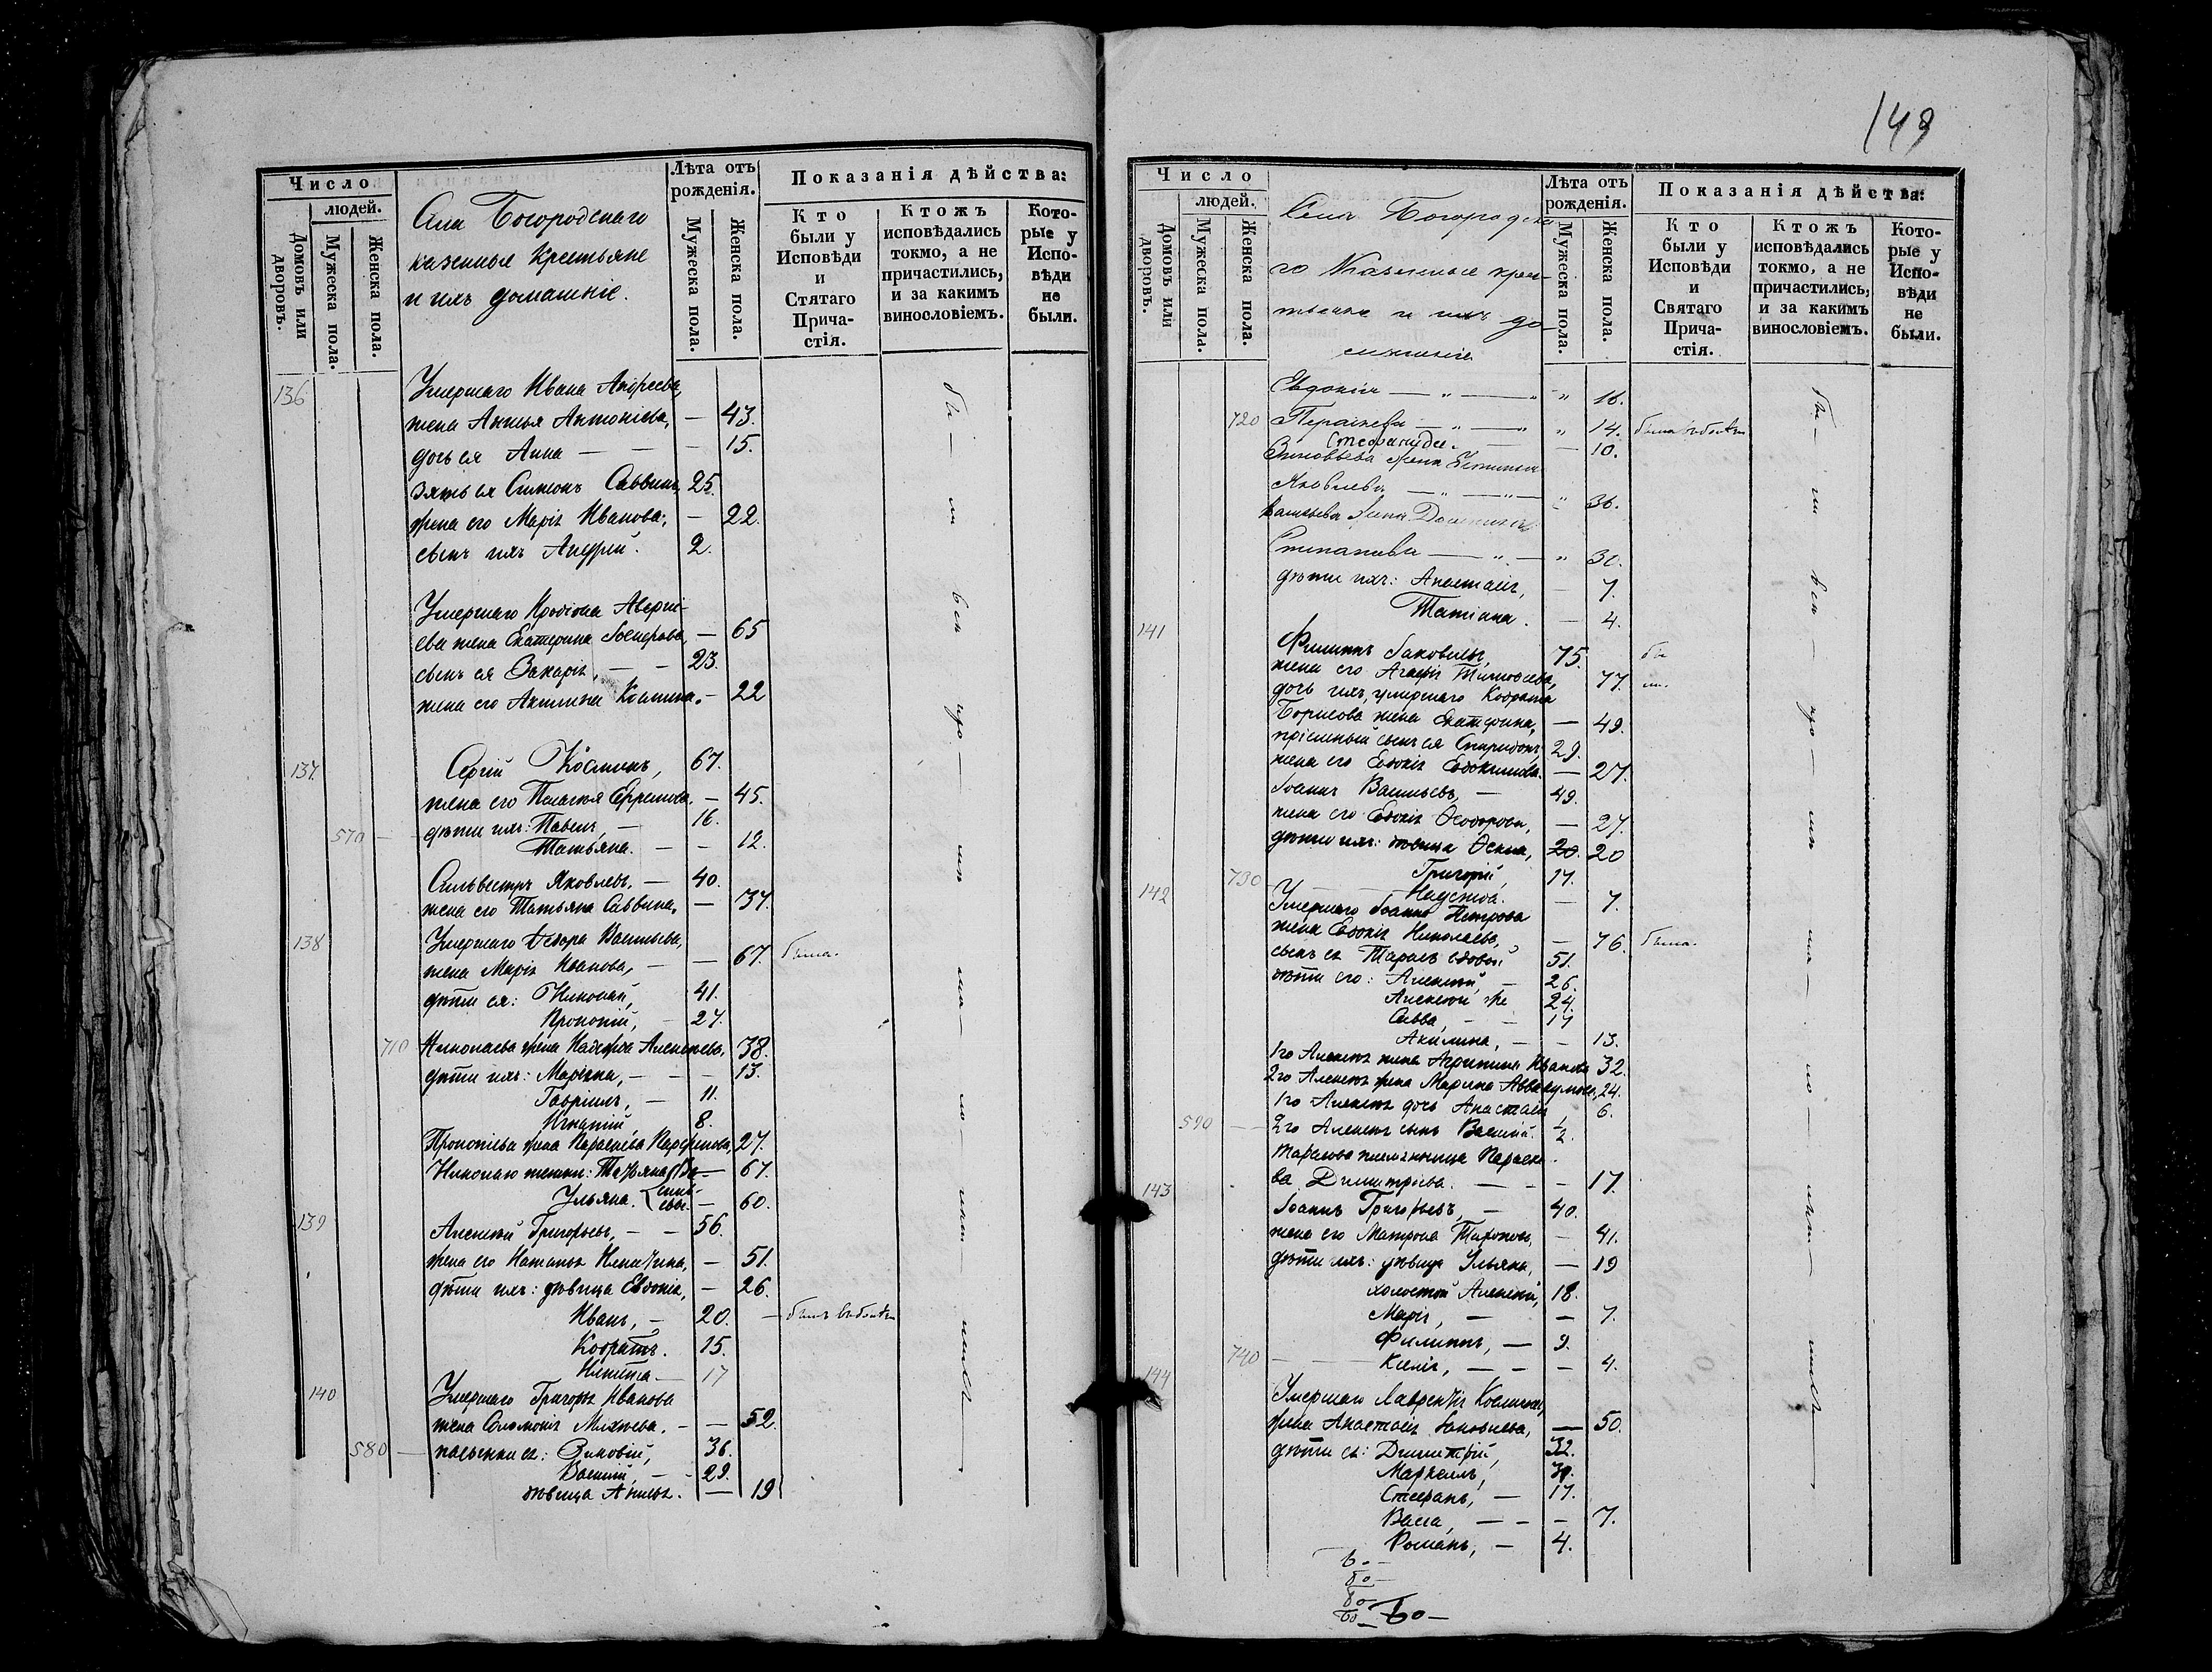 Число
людей.
Домовъ или дворовъ.
Мужеска пола.
Женска пола.
Села Богородскаго
казенные крестьяне
и ихъ домашніе.
Лѣта отъ рожденія.
Мужеска пола.
Женска пола.
Показанія дѣйства:
Кто были у Исповѣди и Стятаго Прича-стія.
Ктожъ исповѣдались токмо, а не причастились, и за какимъ винословіемъ.
Кото-рые у Испо-вѣди не были.
136 Умершаго Ивана Андреева,
жена Аксинья Антоніева, — 43.
дочь ея Анна — — — 15.
зять ея Симеонъ Саввинъ, 25.
жена его Марія Иванова, — 22.
сынъ ихъ Андрей. 2.
Умершаго Иродіона Аверкі-
ева жена Екатерина — 65
сынъ ея Захарія, — — 23.
жена его Акилина Козмина. — 22
137 Сергій Козминъ, 67.
жена его Пелагея Ефремова. — 45.
570 — дѣти ихъ: Павелъ, — 16.
Татьяна. — — 12.
Сильвестръ Яковлевъ. — 40.
жена его Татьяна Саввина. — 37.
138 Умершаго Ѳедора Васильева,
жена Марія Иванова, — — 67. была.
дѣти ея: Николай, 41.
Прокопій, — 27.
710 Николаева жена Надежда Алексѣева, 38.
дѣти ихъ: Маріяна, — — — 13.
Гавріилъ, — 11.
Игнатій 8.
Прокопіева жена Параскева Парфенова, 27.
Николаю тетки: Татьяна — 67.
Ульяна. — 60.
139 Алексѣй Григорьевъ, — — 56.
жена его Наталья Никитина, — 51.
дѣти ихъ: дѣвица Евдокія, — 26.
Иванъ, — 20. — былъ
Кодратъ. 15.
Никита — 17
140 Умершаго Григорія Иванова
жена Соломонія Михѣева. — — 52.
580 — пасынки ея: Зиновій, 36.
Василій, — — 29.
дѣвица Анисья. — 19
бы — ли все — про — ихъ
149
Число
людей.
Домовъ или дворовъ.
Мужеска пола.
Женска пола.
Села Богородска
го Казенные крес-
тьяне и ихъ до
машніе
Лѣта отъ рожденія.
Мужеска пола.
Женска пола.
Показанія дѣйства:
Кто были у Исповѣди и Святаго Прича-стія.
Ктожъ исповѣдались токмо, а не причастились, и за какимъ винословіемъ.
Кото-рые у Испо-вѣди не были.
Евдокія — " — " " 16.
720 Параскева — " — " " 14. была
Стефанида. — — 10.
Зиновьева жена Устинья
Яковлева — " — " — " 36.
Васильева жена Домникія
Степанова — " — " 30.
дѣти ихъ: Анастасія, — 7.
Татіана. — 4.
141 Филиппъ Іаковлевъ, 75. бы
жена его Агафія Тимоѳеева, 77. ли.
дочь ихъ, умершаго Кодрата
Борисова жена Екатерина, — 49.
пріемный сынъ ея Спиридонъ 29.
жена его Евдокія Евдокимова. — 27.
Іоаннъ Васильевъ, — 49.
жена его Евдокія Ѳеодорова, — 27.
дѣти ихъ: дѣвица Ѳекла, 20. 20
Григорій, 17.
730 — — Надежда. — 7.
142 Умершаго Іоанна Петрова
жена Евдокія Николаева, — 76. была.
сынъ ея Тарасъ вдовый 51.
дѣти его: Алексѣй, — 26.
Алексѣй же 24.
Савва, — — 17
Акилина, — — 13.
1го Алексѣя жена Агрипина Иванова 32.
2го Алексѣя жена Марина Аввакумова, 24.
1го Алексѣя дочь Анастасія 6.
590 — — 2го Алексѣя сынъ Василій. ½.
Тарасова племянница Параске-
ва Димитріева. — — — 17.
143 Іоаннъ Григорьевъ, — 40.
жена его Матрона — 41.
дѣти ихъ: дѣвица Ульяна, — 19
холостой Алексѣй, 18.
Марія, — — 7.
Филиппъ, — 9.
740 — — Ксенія, — — — 4.
144 Умершаго Лаврентія Козмина,
жена Анастасія Іаковлева, — 50.
дѣти ея: Димитрій, 32.
Маркеллъ, 30.
Стефанъ, — 17.
Васса, — — — 7.
Романъ, — 4.
бы — ли все — про — ихъ